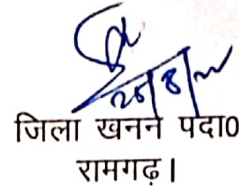 जिला खनन पदा0
रामगढ़।